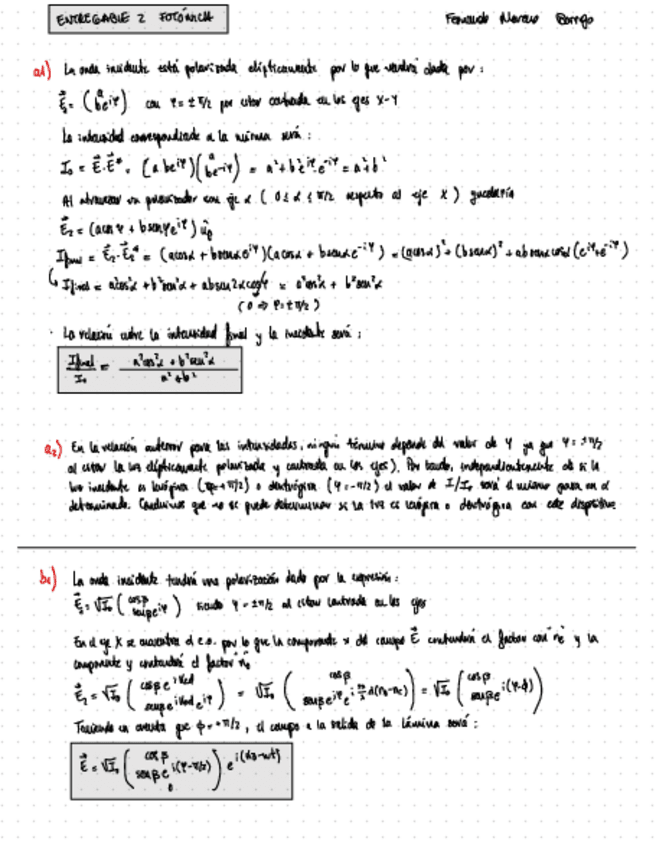 ENTREGABLE 2 FOTÓNICA
Fernando Moreno
a1) La onda incidente está polarizada elípticamente por lo que vendrá dada por:
E⃗₀ = (a be^{iφ}) con φ = ± π/2 por estar centrada en los ejes X-Y
La intensidad correspondiente a la misma será:
I₀ = E⃗·E⃗* = (a be^{iφ})(a be^{-iφ}) = a² + b² e^{iφ}·e^{-iφ} = a² + b²
Al atravesar un polarizador con eje α (0 ≤ α ≤ π/2 respecto al eje X) quedaría
E⃗₂ = (acosφ + bsenφe^{iφ}) û_p
I_final = E⃗₂·E⃗₂* = (acosα + bsenαe^{iφ})(acosα + bsenαe^{-iφ}) = (acosα)² + (bsenα)² + absenαcosα(e^{iφ}+e^{-iφ})
I_final = a²cos²α + b²sen²α + absen2αcosφ = a²cos²α + b²sen²α
(0 ⇒ φ = ± π/2)
· La relación entre la intensidad final y la incidente será:
I_final/I₀ = (a²cos²α + b²sen²α)/(a² + b²)
a2) En la relación anterior para las intensidades, ningún término depende del valor de φ ya que φ = ± π/2
al estar la luz elípticamente polarizada y centrada en los ejes). Por tanto, independientemente de si la
luz incidente es levógira (φ = + π/2) o dextrógira (φ = - π/2) el valor de I/I₀ será el mismo para un α
determinado. Concluimos que no se puede determinar si la luz es levógira o dextrógira con este dispositivo
b1) La onda incidente tendrá una polarización dada por la expresión:
E⃗₀ = √I₀ (cosβ senβe^{iφ}) siendo φ = ± π/2 al estar centrada en los ejes
En el eje X se encuentra el e.o. por lo que la componente x del campo E⃗ contendrá el factor con n_e y la
componente y contendrá el factor n_o
E⃗₂ = √I₀ = √I₀ = √I₀ (cosβ senβe^{i(φ-ϕ)})
Teniendo en cuenta que ϕ = + π/2, el campo a la salida de la lámina será:
E⃗ = √I₀ (cosβ senβe^{i(φ-π/2)} 0) e^{i(kz-wt)}